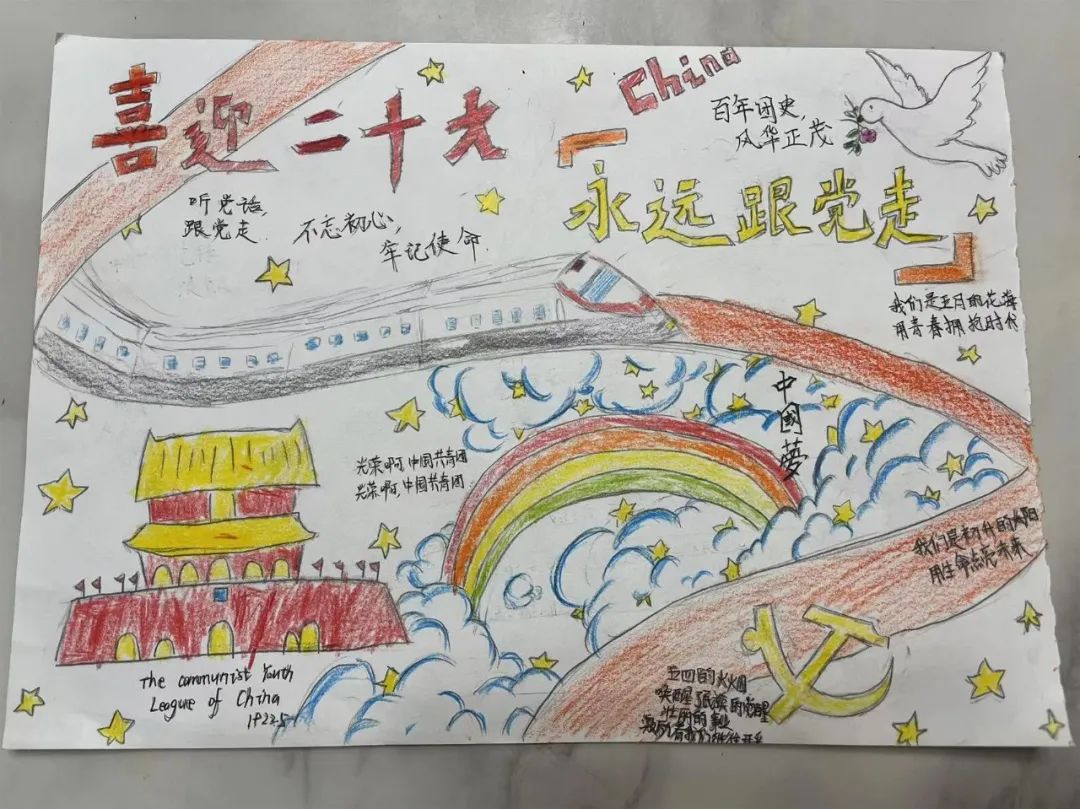 喜迎二十大
China
百年团史，
风华正茂
『永远跟党走』
听党话，
跟党走.
不忘初心，
牢记使命.
我们是五月的花海
用青春拥抱时代
中國夢
光荣啊，中国共青团
光荣啊，中国共青团
我们是初升的太阳
用生命点亮未来
The communist Youth
League of China
1922.5
五四的火
唤醒了民族的觉醒
壮丽的事业